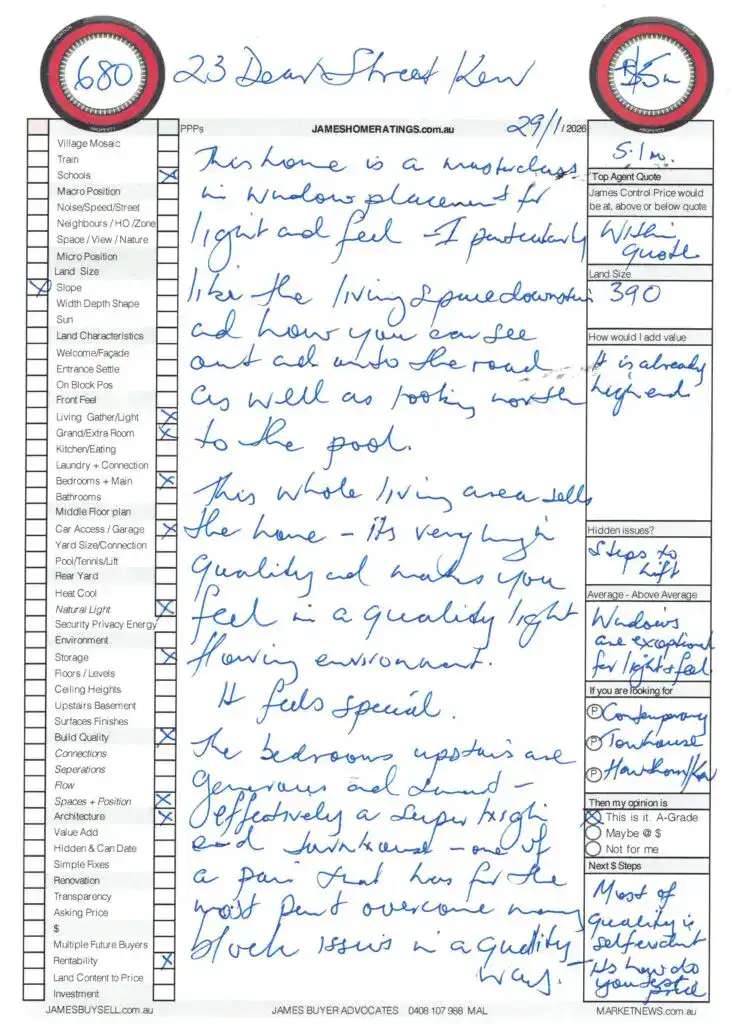 680
23 Dean Street Kew
$5m
PPPs
JAMESHOMERATINGS.com.au
29/1/2026
Village Mosaic
Train
Schools
Macro Position
Noise/Speed/Street
Neighbours / HO /Zone
Space / View / Nature
Micro Position
Land Size
Slope
Width Depth Shape
Sun
Land Characteristics
Welcome/Façade
Entrance Settle
On Block Pos
Front Feel
Living Gather/Light
Grand/Extra Room
Kitchen/Eating
Laundry + Connection
Bedrooms + Main
Bathrooms
Middle Floor plan
Car Access / Garage
Yard Size/Connection
Pool/Tennis/Lift
Rear Yard
Heat Cool
Natural Light
Security Privacy Energy
Environment
Storage
Floors / Levels
Ceiling Heights
Upstairs Basement
Surfaces Finishes
Build Quality
Connections
Seperations
Flow
Spaces + Position
Architecture
Value Add
Hidden & Can Date
Simple Fixes
Renovation
Transparency
Asking Price
$
Multiple Future Buyers
Rentability
Land Content to Price
Investment
This home is a masterclass
in window placement for
light and feel - I particularly
like the living space downstairs
and how you can see
out and unto the road
as well as looking north
to the pool.
This whole living area sells
the home - its very high
quality and makes you
feel in a quality light
flowing environment.
It feels special.
The bedrooms upstairs are
generous and sound -
effectively a super high
end townhouse - one of
a pair that has for the
most part overcome many
block issues in a quality
way.
5.1m.
Top Agent Quote
James Control Price would
be at, above or below quote
Within
quote
Land Size
390
How would I add value
It is already
high end
Hidden issues?
Steps to
lift
Average - Above Average
Windows
are exceptional
for light & feel
If you are looking for
P Contemporary
P Townhouse
P Hawthorn/Kew
Then my opinion is
This is it. A-Grade
Maybe @ $
Not for me
Next $ Steps
Most of
quality is
self evident
- Its how do
you test
price
JAMESBUYSELL.com.au
JAMES BUYER ADVOCATES 0408 107 988 MAL
MARKETNEWS.com.au